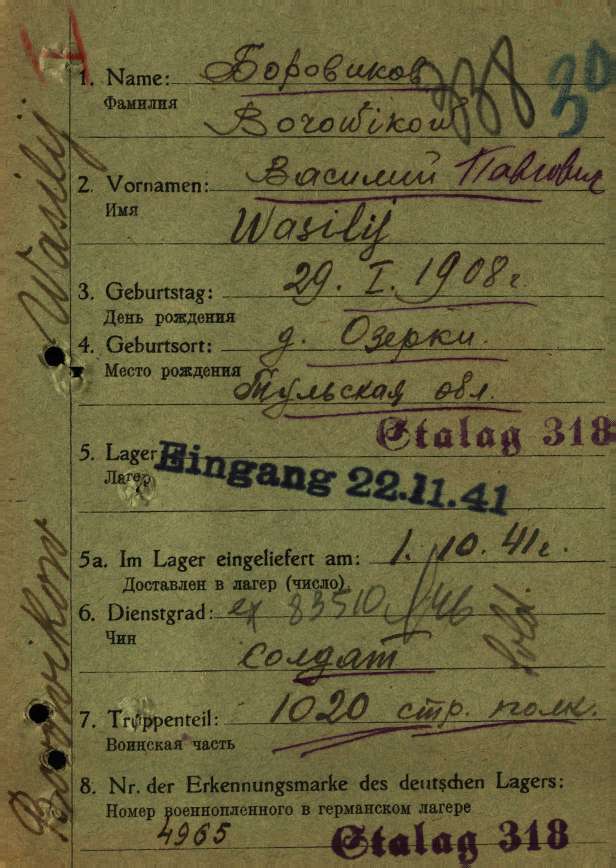 1. Name: Боровиков
Фамилия
30
2. Vornamen: Василий Павлович
Имя
Wasilij
3. Geburtstag: 29. I. 1908 г
День рождения
4. Geburtsort: д. Озерки
Место рождения
Тульская обл.
Stalag 318
5. Lager
Лагер
Eingang 22.11.41
5a. Im Lager eingeliefert am: 1. 10. 41 г.
Доставлен в лагер (число)
6. Dienstgrad:
Чин
солдат
7. Truppenteil: 1020 стр. полк.
Воинская часть
8. Nr. der Erkennungsmarke des deutschen Lagers:
Номер военнопленного в германском лагере
4965
Stalag 318
Borowikow Wasilij